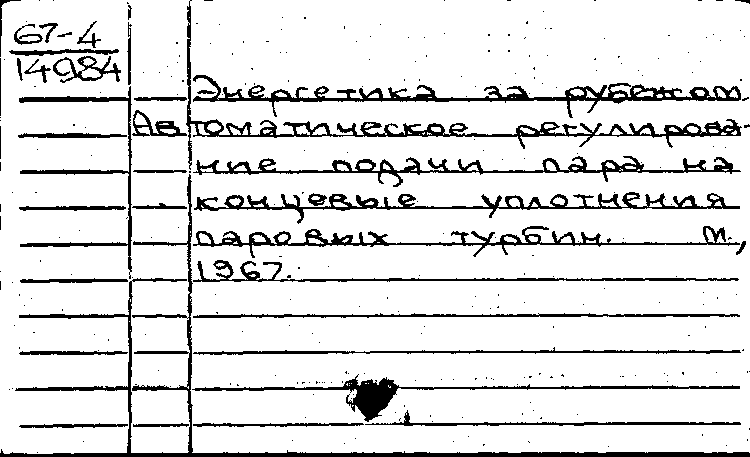 67-4
14984
Энергетика за рубежом
Автоматическое регулирова-
ние подачи пара на
концевые уплотнения
паровых турбин. М.,
1967.